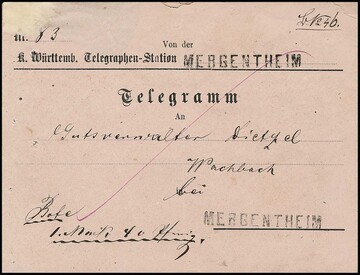 Nr. 83
Von der
K. Württemb. Telegraphen-Station MERGENTHEIM
Telegramm
An
Gutsverwalter Dietzel
Wachbach
bei
MERGENTHEIM
Bote
1. Mark 40 Pfennig